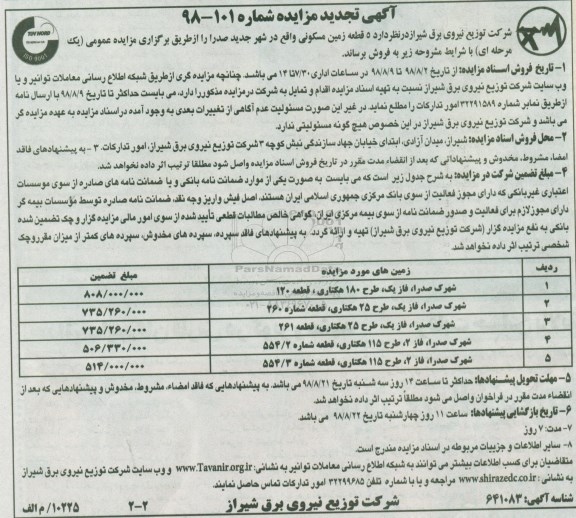 آگهی تجدید مزایده شماره ۱۰۱-۹۸
شرکت توزیع نیروی برق شیرازدرنظردارد ۵ قطعه زمین مسکونی واقع در شهر جدید صدرا را ازطریق برگزاری مزایده عمومی (یک
مرحله ای) با شرایط مشروحه زیر به فروش برساند.
۱- تاریخ فروش اسناد مزایده: از تاریخ ۹۸/۸/۲ تا ۹۸/۸/۹ در ساعات اداری ۷/۳۰ تا ۱۴ می باشد. چنانچه مزایده گری ازطریق شبکه اطلاع رسانی معاملات توانیر و یا
وب سایت شرکت توزیع نیروی برق شیراز نسبت به تهیه اسناد مزایده اقدام و تمایل به شرکت درمزایده مذکوررا دارد، می بایست حداکثر تا تاریخ ۹۸/۸/۹ با ارسال نامه
ازطریق نمابر شماره ۳۲۲۹۱۵۸۹ امور تدارکات را مطلع نماید. در غیر این صورت مسئولیت عدم آگاهی از تغییرات بعدی به وجود آمده دراسناد مزایده به عهده مزایده گر
می باشد و شرکت توزیع نیروی برق شیراز در این خصوص هیچ گونه مسئولیتی ندارد.
۲- محل فروش اسناد مزایده: شیراز، میدان آزادی، ابتدای خیابان جهاد سازندگی نبش کوچه ۳ شرکت توزیع نیروی برق شیراز، امور تدارکات. ۳- به پیشنهادهای فاقد
امضا، مشروط، مخدوش و پیشنهاداتی که بعد از انقضاء مدت مقرر در تاریخ فروش اسناد مزایده واصل شود مطلقا ترتیب اثر داده نخواهد شد.
۴- مبلغ تضمین شرکت در مزایده: به شرح جدول زیر است که می بایست به صورت یکی از موارد ضمانت نامه بانکی و یا ضمانت نامه های صادره از سوی موسسات
اعتباری غیربانکی که دارای مجوز فعالیت از سوی بانک مرکزی جمهوری اسلامی ایران هستند، اصل فیش واریز وجه نقد، ضمانت نامه صادره توسط مؤسسات بیمه گر
دارای مجوزلازم برای فعالیت و صدور ضمانت نامه از سوی بیمه مرکزی ایران، گواهی خالص مطالبات قطعی تأیید شده از سوی امور مالی مزایده گزار و چک تضمین شده
بانکی به نفع مزایده گزار (شرکت توزیع نیروی برق شیراز) تهیه و ارائه گردد. به پیشنهادهای فاقد سپرده، سپرده های مخدوش، سپرده های کمتر از میزان مقرروچک
شخصی ترتیب اثر داده نخواهد شد.
ردیف زمین های مورد مزایده مبلغ تضمین
۱ شهرک صدرا، فاز یک، طرح ۱۸۰ هکتاری، قطعه ۱۲۰ ۸۰۸/۰۰۰/۰۰۰
۲ شهرک صدرا، فاز یک، طرح ۲۵ هکتاری، قطعه شماره ۲۶۰ ۷۳۵/۲۶۰/۰۰۰
۳ شهرک صدرا، فاز یک، طرح ۲۵ هکتاری، قطعه ۲۶۱ ۷۳۵/۲۶۰/۰۰۰
۴ شهرک صدرا، فاز ۲، طرح ۱۱۵ هکتاری، قطعه شماره ۵۵۴/۲ ۵۰۶/۳۳۰/۰۰۰
۵ شهرک صدرا، فاز ۲، طرح ۱۱۵ هکتاری، قطعه شماره ۵۵۴/۳ ۵۱۴/۰۰۰/۰۰۰
۵- مهلت تحویل پیشنهادها: حداکثر تا ساعت ۱۴ روز سه شنبه تاریخ ۹۸/۸/۲۱ می باشد. به پیشنهادهایی که فاقد امضاء، مشروط، مخدوش و پیشنهادهایی که بعد از
انقضاء مدت مقرر در فراخوان واصل می شود مطلقاً ترتیب اثر داده نخواهد شد.
۶- تاریخ بازگشایی پیشنهادها: ساعت ۱۱ روز چهارشنبه تاریخ ۹۸/۸/۲۲ می باشد.
۷- مدت: ۷ روز
۸- سایر اطلاعات و جزییات مربوطه در اسناد مزایده مندرج است.
متقاضیان برای کسب اطلاعات بیشتر می توانند به شبکه اطلاع رسانی معاملات توانیر به نشانی: www.Tavanir.org.ir و وب سایت شرکت توزیع نیروی برق شیراز
به نشانی: www.shirazedc.co.ir مراجعه و یا با شماره تلفن ۳۲۲۹۹۶۸۵ امور تدارکات تماس حاصل نمایند.
شناسه آگهی: ۶۴۱۰۸۳ شرکت توزیع نیروی برق شیراز ۲-۲ ۱۰۲۲۵/ م الف